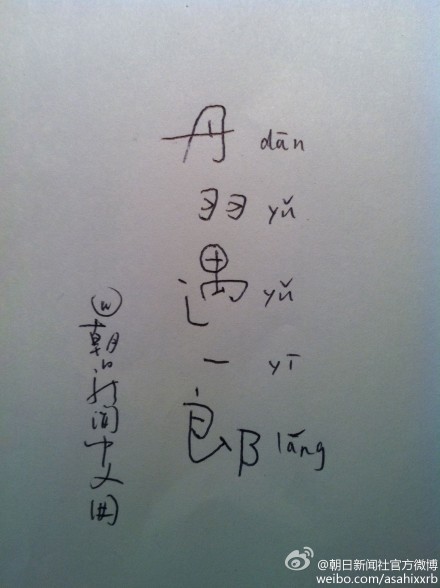 丹 dān
羽 yǔ
遇 yǔ
一 yī
郎 lǎng
@朝日新闻中文网
@朝日新闻社官方微博
weibo.com/asahixxrb